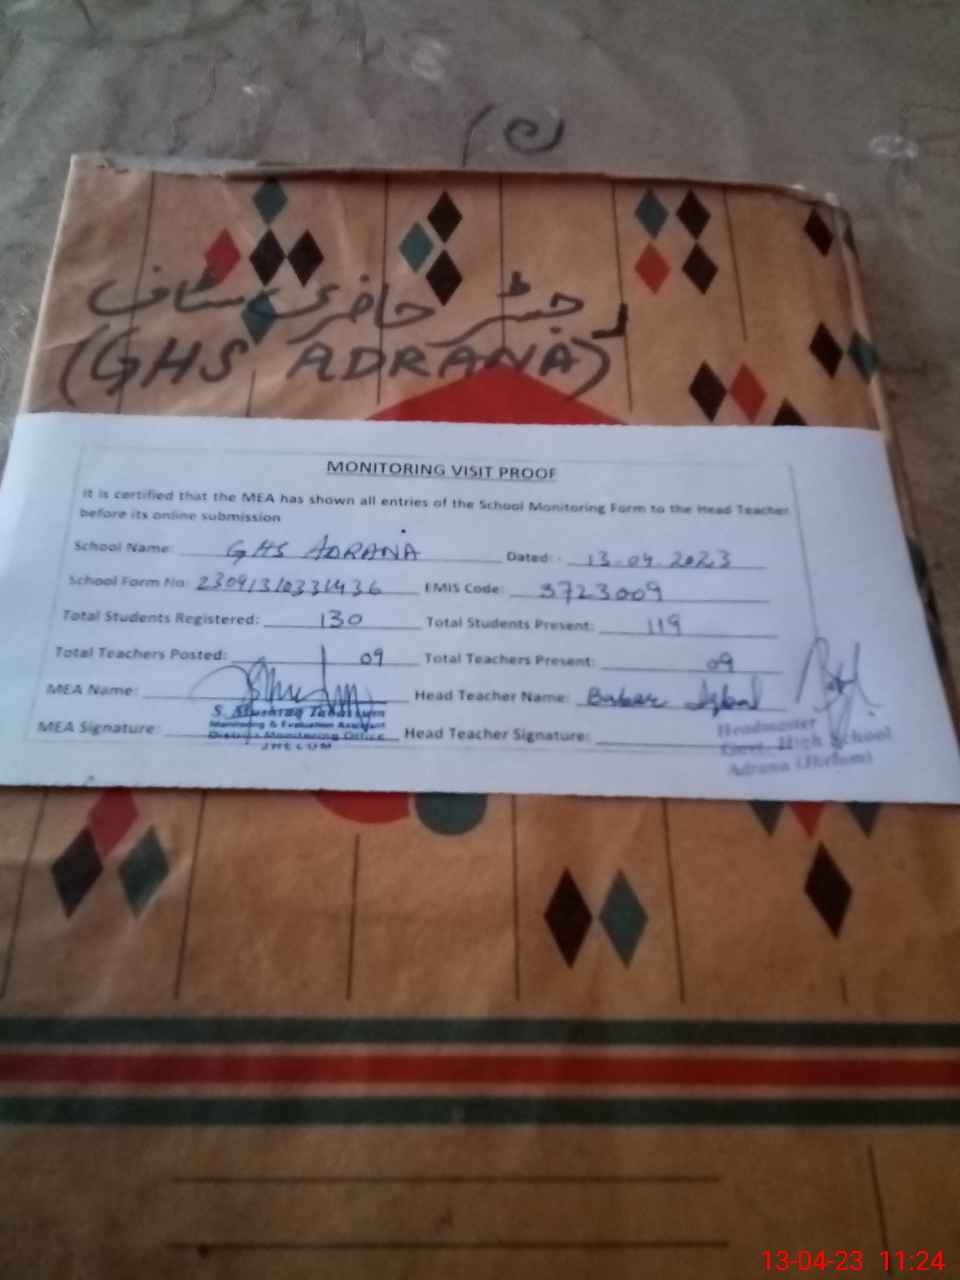 رجسٹر حاضری سٹاف
(GHS ADRANA)
MONITORING VISIT PROOF
It is certified that the MEA has shown all entries of the School Monitoring Form to the Head Teacher
before its online submission
School Name: GHS ADRANA Dated: - 13.04.2023
School Form No: 23091310331436 EMIS Code: 3723009
Total Students Registered: 130 Total Students Present: 119
Total Teachers Posted: 09 Total Teachers Present: 09
MEA Name: Head Teacher Name: Baber Iqbal
S. Mushraq Tabassum
Monitoring & Evaluation Assistant
MEA Signature: District Monitoring Office Head Teacher Signature:
JHELUM
Headmaster
Govt. High School
Adrana (Jhelum)
13-04-23 11:24